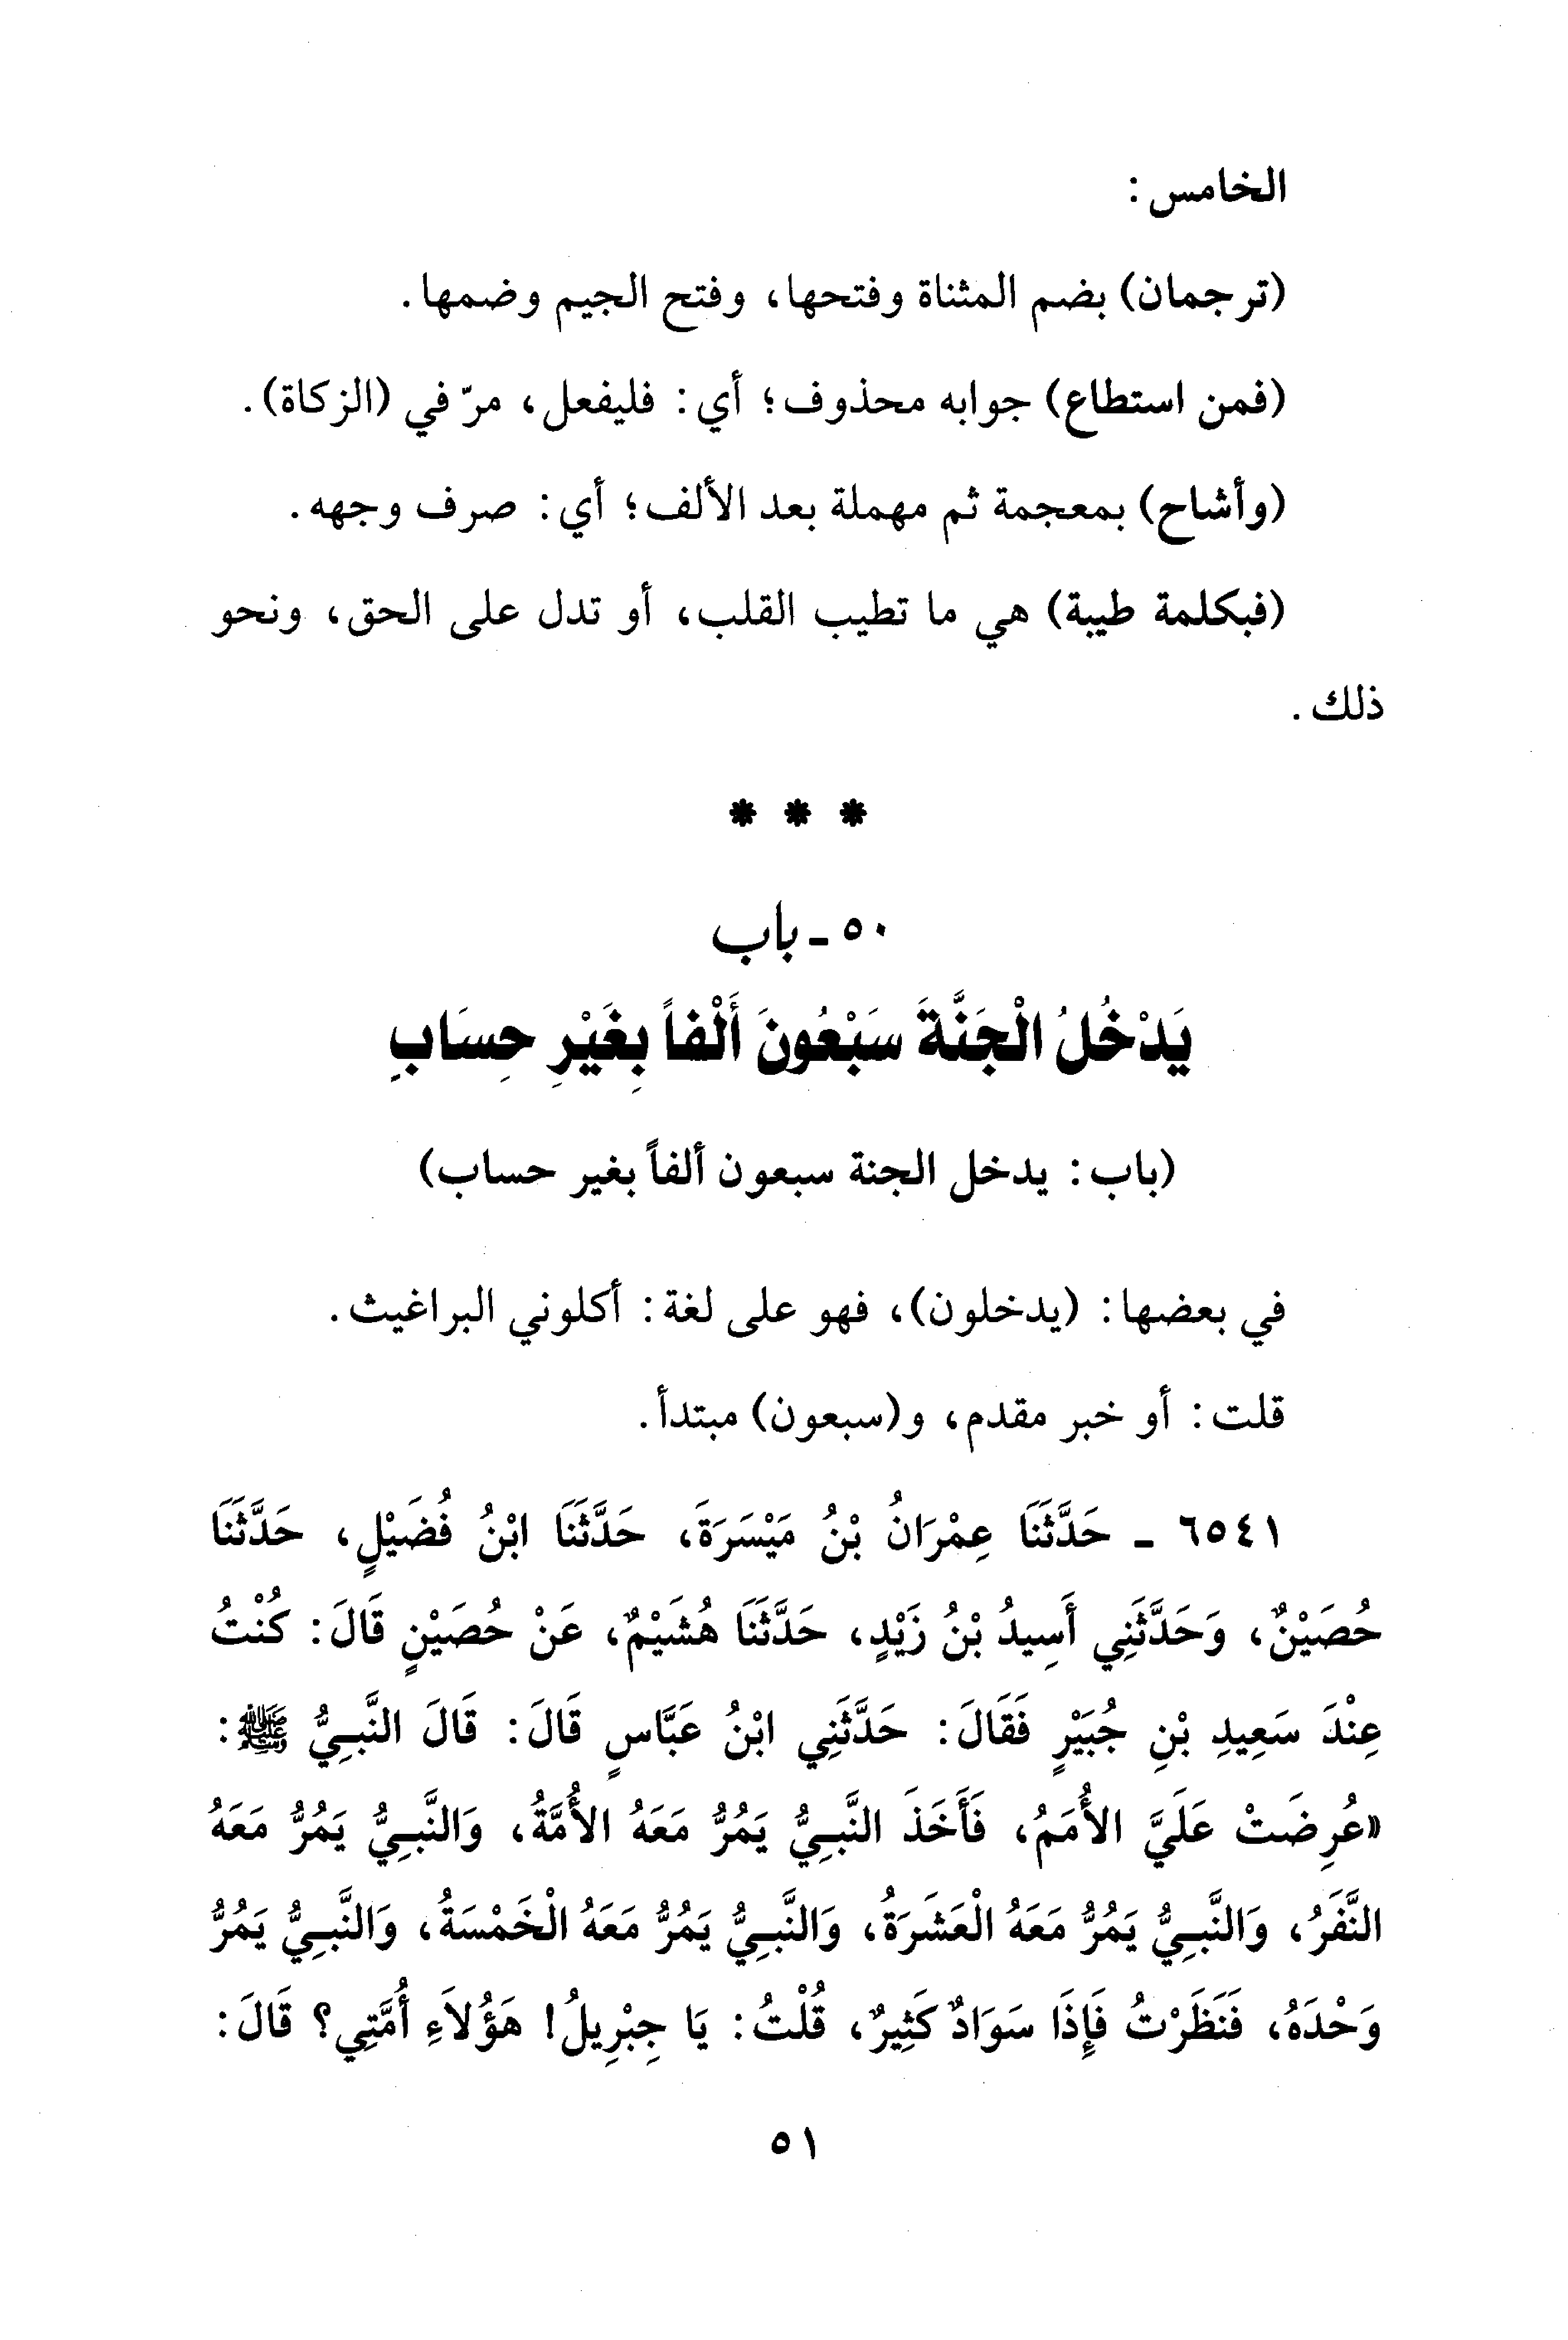 الخامس:
(ترجمان) بضم المثناة وفتحها، وفتح الجيم وضمها.
(فمن استطاع) جوابه محذوف؛ أي: فليفعل، مرّ في (الزكاة).
(وأشاح) بمعجمة ثم مهملة بعد الألف؛ أي: صرف وجهه.
(فبكلمة طيبة) هي ما تطيب القلب، أو تدل على الحق، ونحو
ذلك.
* * *
٥٠ - باب
يَدْخُلُ الْجَنَّةَ سَبْعُونَ أَلْفاً بِغَيْرِ حِسَابٍ
(باب: يدخل الجنة سبعون ألفاً بغير حساب)
في بعضها: (يدخلون)، فهو على لغة: أكلوني البراغيث.
قلت: أو خبر مقدم، و(سبعون) مبتدأ.
٦٥٤١ - حَدَّثَنَا عِمْرَانُ بْنُ مَيْسَرَةَ، حَدَّثَنَا ابْنُ فُضَيْلٍ، حَدَّثَنَا
حُصَيْنٌ، وَحَدَّثَنِي أَسِيدُ بْنُ زَيْدٍ، حَدَّثَنَا هُشَيْمٌ، عَنْ حُصَيْنٍ قَالَ: كُنْتُ
عِنْدَ سَعِيدِ بْنِ جُبَيْرٍ فَقَالَ: حَدَّثَنِي ابْنُ عَبَّاسٍ قَالَ: قَالَ النَّبِيُّ ﷺ:
«عُرِضَتْ عَلَيَّ الأُمَمُ، فَأَخَذَ النَّبِيُّ يَمُرُّ مَعَهُ الأُمَّةُ، وَالنَّبِيُّ يَمُرُّ مَعَهُ
النَّفَرُ، وَالنَّبِيُّ يَمُرُّ مَعَهُ الْعَشَرَةُ، وَالنَّبِيُّ يَمُرُّ مَعَهُ الْخَمْسَةُ، وَالنَّبِيُّ يَمُرُّ
وَحْدَهُ، فَنَظَرْتُ فَإِذَا سَوَادٌ كَثِيرٌ، قُلْتُ: يَا جِبْرِيلُ! هَؤُلاَءِ أُمَّتِي؟ قَالَ:
٥١